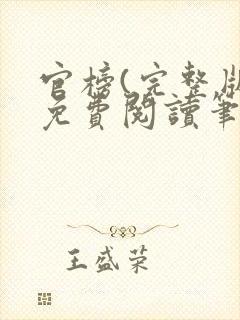 官榜(完整版
免費閱讀筆
王盛荣